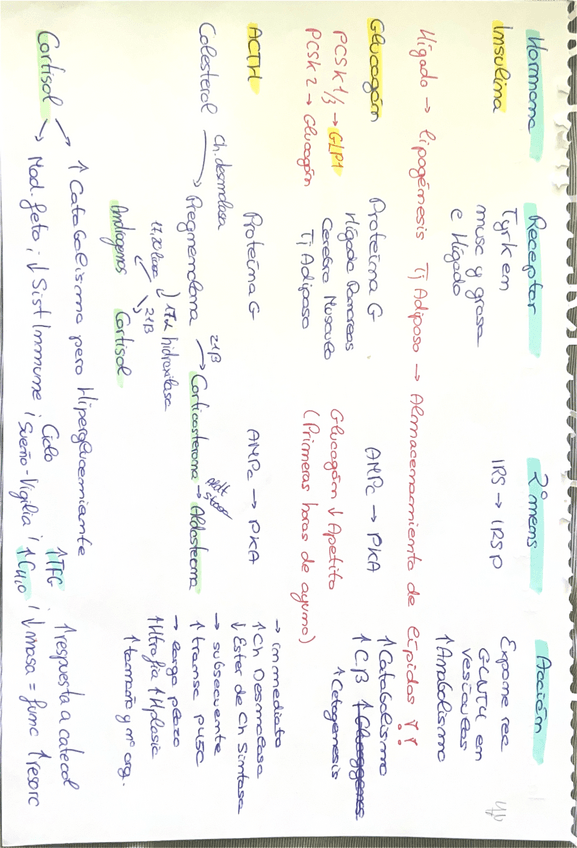 Hormona Receptor 2º mens Acción
Insulina Tyrk en musc y grasa e Hígado IRS → IRSP Expone rec GLUT4 en vesículas ↑Anabolismo
Hígado → lipogénesis Tj Adiposo → Almacenamiento de lípidos !!
Glucagón Proteína G AMPc → PKA ↑Catabolismo
PCSK 1/3 → GLP1 Hígado Pancreas Cerebro Musculo Tj Adiposo Glucagón ↓ Apetito ↑C.β
PCSK2 → Glucagón (Primeras horas de ayuno) ↑Cetogenesis
ACTH Proteína G AMPc → PKA → inmediato
↑Ch Desmolasa
↓Ester de Ch Sintasa
→ subsecuente
↑transc p45c
→ largo plazo
↑Htrofia ↑Hplasia
↑tamaño y nº org.
Colesterol Ch. desmolasa → Pregnenolona 21β → Corticosterona → Aldosterona
17,20 liasa 17α hidroxilasa
Androgenos 21β Cortisol
Cortisol → ↑Catabolismo pero Hiperglucemiante ↑TFG ↑respuesta a catecol
→ Mad. feto ; ↓Sist Immune ; Ciclo Sueño-Vigilia ; ↑ ; ↓masa = func ↑resorc